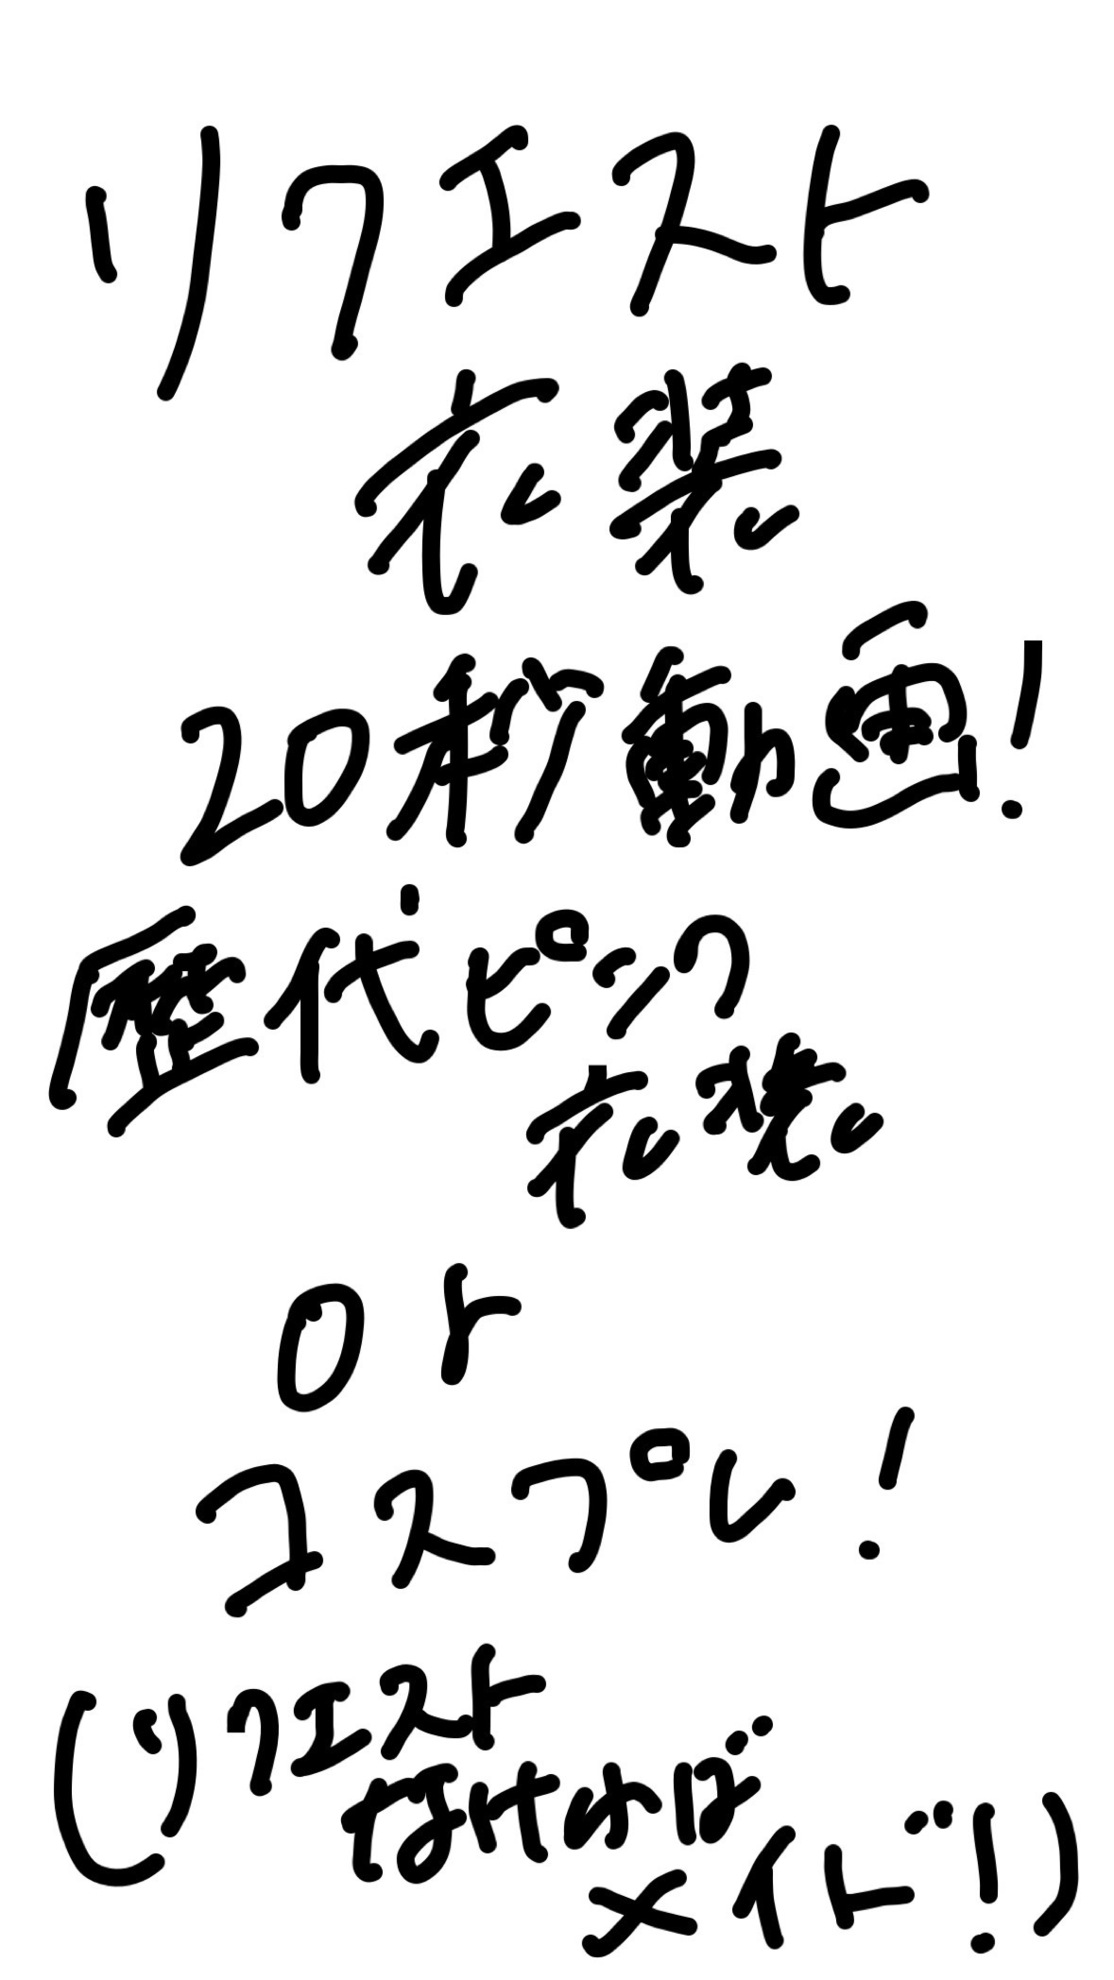 リクエスト
衣装
20秒動画!
歴代ピンク
衣装
or
コスプレ!
(リクエスト
なければ
メイド!)